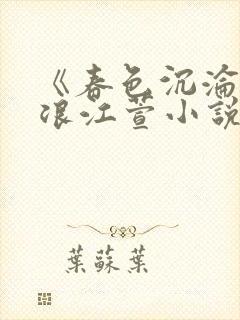 《春色沉淪
浪江萱小說
葉蘇葉